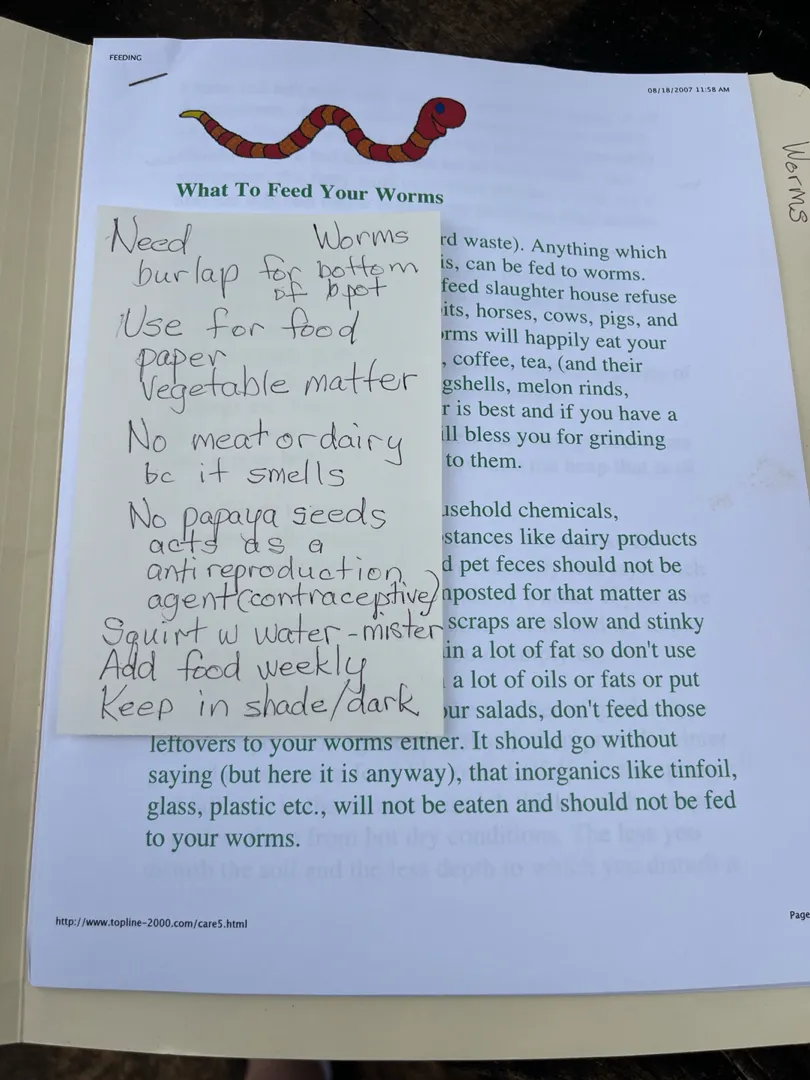 FEEDING
08/18/2007 11:58 AM
Worms
What To Feed Your Worms
Need Worms
burlap for bottom
of pot
Use for food
paper
Vegetable matter
No meat or dairy
bc it smells
No papaya seeds
acts as a
anti reproduction
agent (contraceptive)
Squirt w water - mister
Add food weekly
Keep in shade/dark
rd waste). Anything which
is, can be fed to worms.
feed slaughter house refuse
its, horses, cows, pigs, and
rms will happily eat your
, coffee, tea, (and their
gshells, melon rinds,
r is best and if you have a
ill bless you for grinding
to them.
usehold chemicals,
stances like dairy products
d pet feces should not be
mposted for that matter as
scraps are slow and stinky
in a lot of fat so don't use
a lot of oils or fats or put
our salads, don't feed those
leftovers to your worms either. It should go without
saying (but here it is anyway), that inorganics like tinfoil,
glass, plastic etc., will not be eaten and should not be fed
to your worms.
http://www.topline-2000.com/care5.html
Page